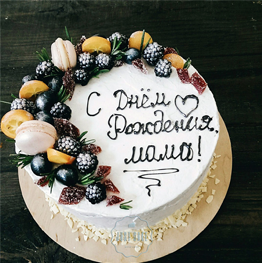 С Днём
Рождения,
мама!